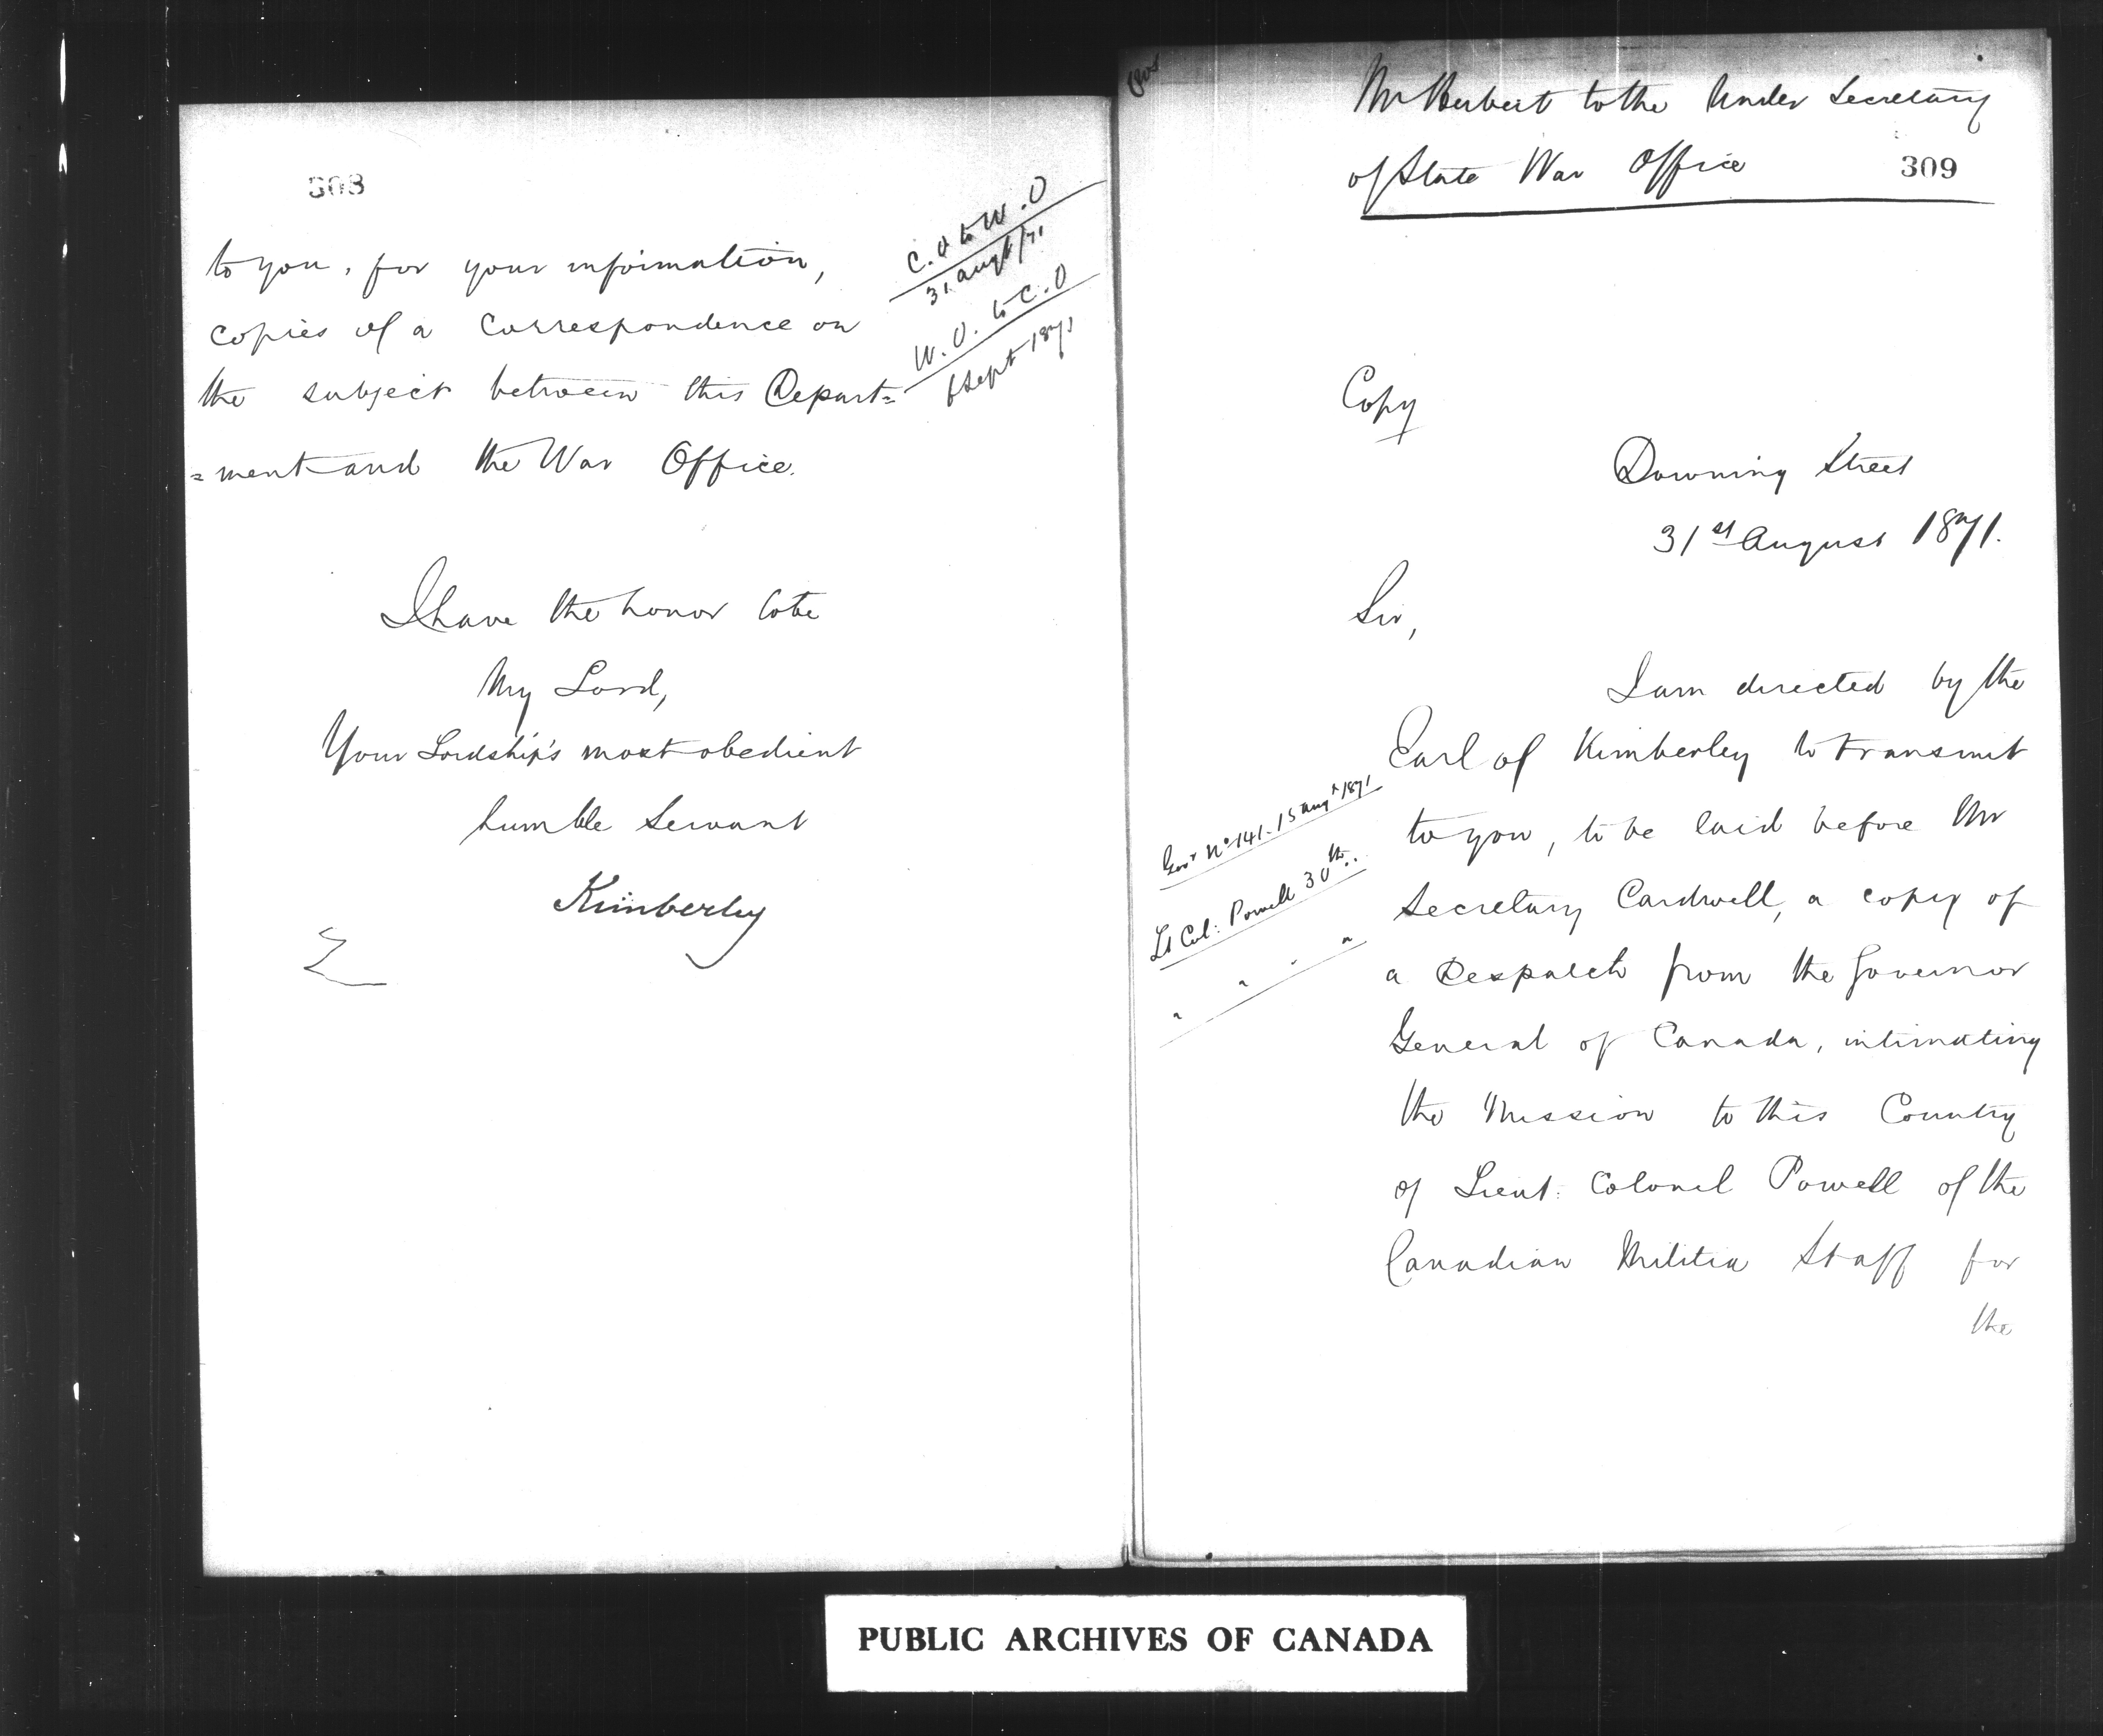 308
to you, for your information,
copies of a Correspondence on
the subject between this Depart=
=ment and the War Office.
C.O to W.O
31 Augt/71
W.O. to C.O
6 Sept 1871
I have the honor to be
My Lord,
Your Lordship's most obedient
humble Servant
Kimberley
Mr Herbert to the Under Secretary
of State War Office
309
Copy
Downing Street
31st August 1871.
Sir,
I am directed by the
Earl of Kimberley to transmit
to you, to be laid before Mr
Secretary Cardwell, a copy of
a Despatch from the Governor
General of Canada, intimating
the Mission to this Country
of Lieut: Colonel Powell of the
Canadian Militia Staff for
the
Govr No 141. 15 Augt 1871
Lt Col: Powell 30th..
" " " "
PUBLIC ARCHIVES OF CANADA